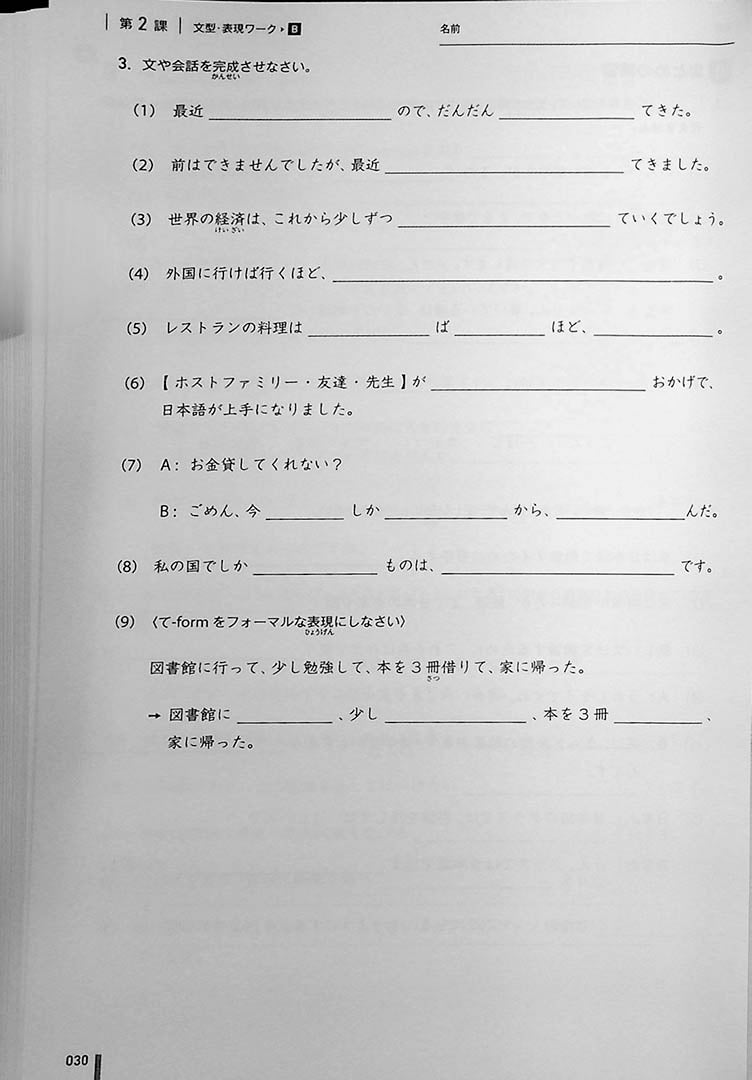 第2課 文型・表現ワーク▸B 名前
3. 文や会話を完成させなさい。
かんせい
(1) 最近 ので、だんだん てきた。
(2) 前はできませんでしたが、最近 てきました。
(3) 世界の経済は、これから少しずつ ていくでしょう。
けいざい
(4) 外国に行けば行くほど、 。
(5) レストランの料理は ば ほど、 。
(6) 【ホストファミリー・友達・先生】が おかげで、
日本語が上手になりました。
(7) A: お金貸してくれない?
B: ごめん、今 しか から、 んだ。
(8) 私の国でしか ものは、 です。
(9) 〈て-formをフォーマルな表現にしなさい〉
ひょうげん
図書館に行って、少し勉強して、本を3冊借りて、家に帰った。
さつ
→ 図書館に 、少し 、本を3冊 、
家に帰った。
030